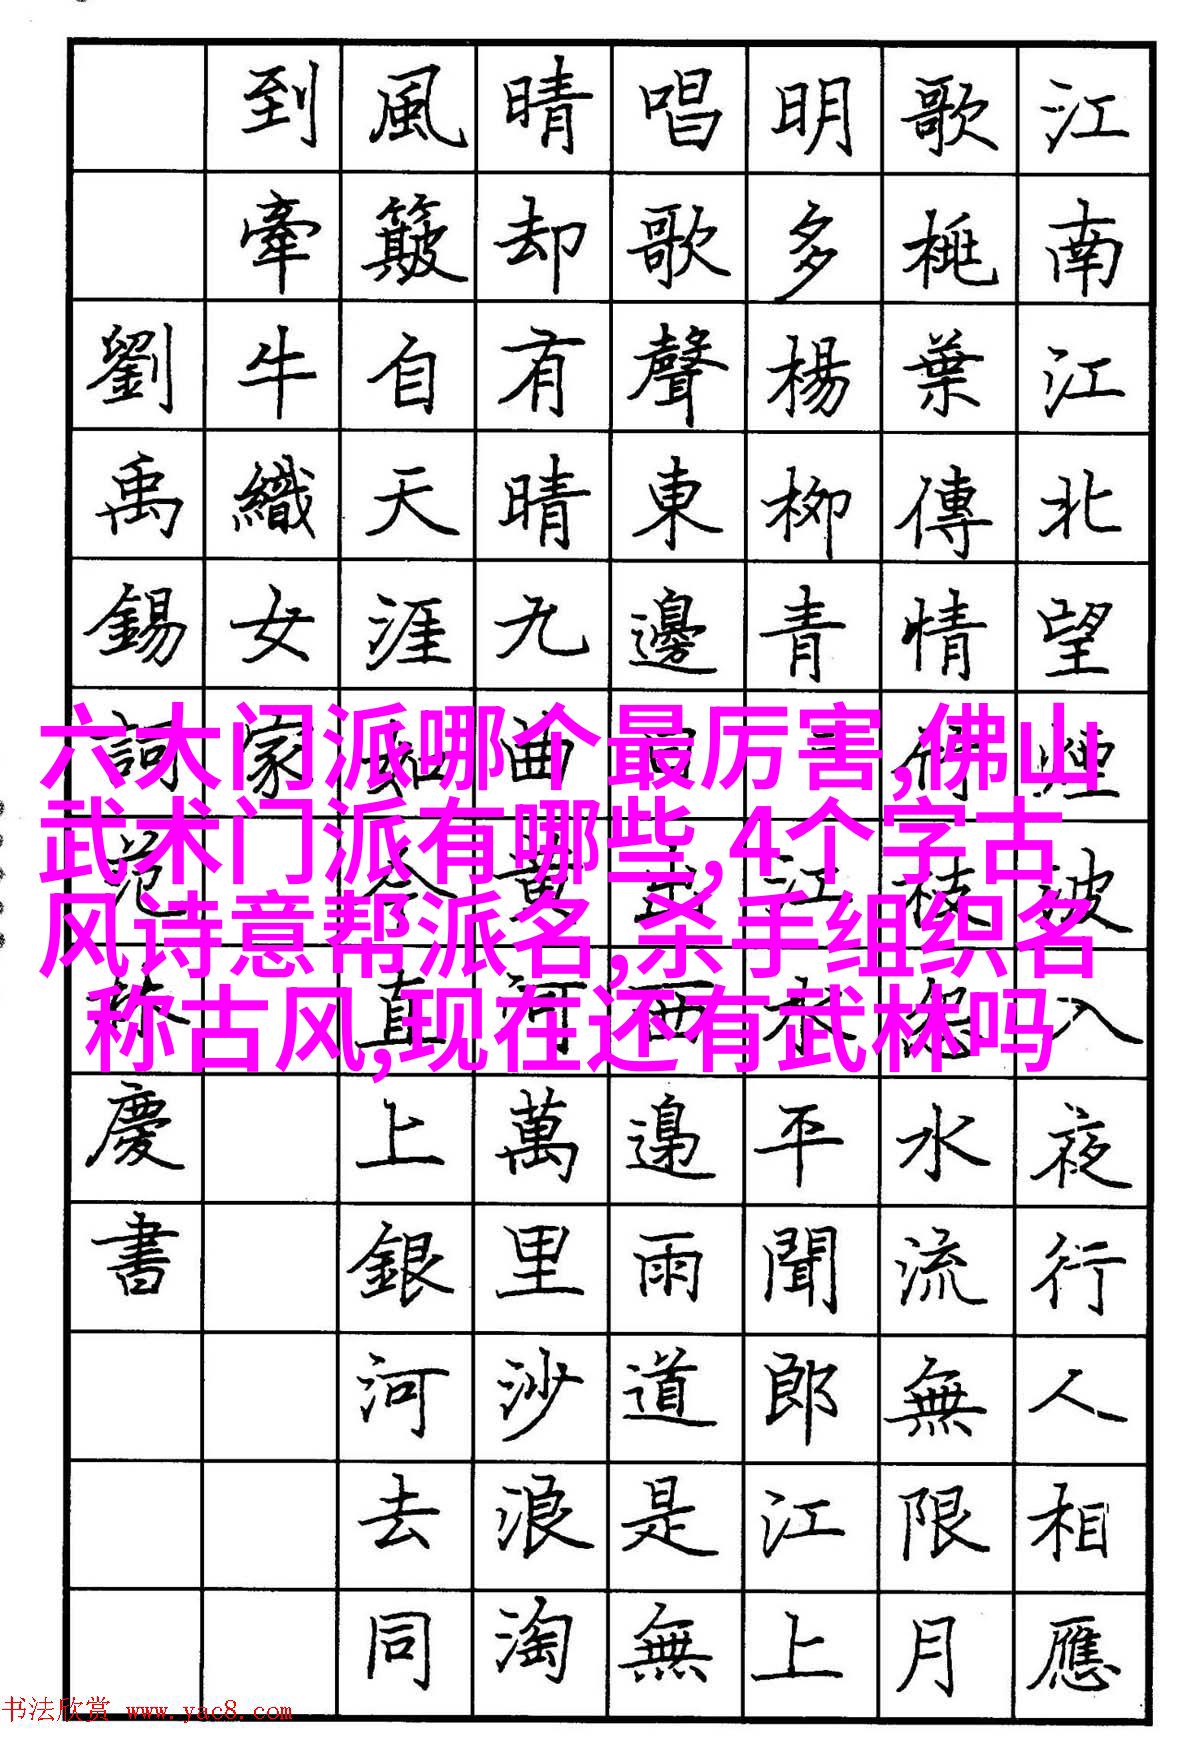 江南江北望煙波入夜行人相應
歌桃葉傳情竹枝怨水流無限月
明多楊柳青江水平聞郎江上
唱歌聲東邊出西邊雨道是無
晴却有晴九曲黄河萬里沙浪淘
風簸自天涯如今直上銀河去同
到牽牛織女家
劉禹錫詞范慶書
六大门派哪个最厉害,佛山
武术门派有哪些,4个字古
风诗意帮派名,杀手组织名
称古风,现在还有武林吗
书法欣赏 www.yac8.com